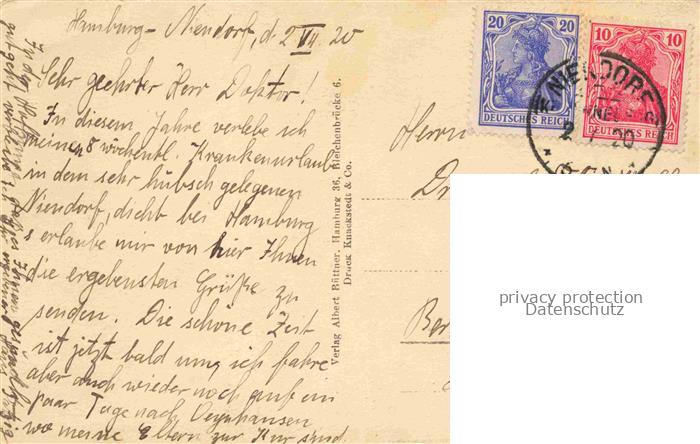 Hamburg - Niendorf, d. 2 VII. 20
Sehr geehrter Herr Doktor!
In diesem Jahre verlebe ich
meinen 8 wöchentl. Krankenurlaub
in dem sehr hübsch gelegenen
Niendorf, dicht bei Hamburg
erlaube mir von hier Ihnen
die ergebensten Grüße zu
senden. Die schöne Zeit
ist jetzt bald um, ich fahre
aber auch wieder noch auf ein
paar Tage nach Oeynhausen
wo meine Eltern zur Kur sind
In der Hoffnung,
gut geht
Verlag Albert Büttner, Hamburg 36, Bleichenbrücke 6.
Druck Knackstedt & Co.
20 20
DEUTSCHES REICH
10 10
DEUTSCHES REICH
NIENDORF
Herrn
Dr
Ber
privacy protection
Datenschutz